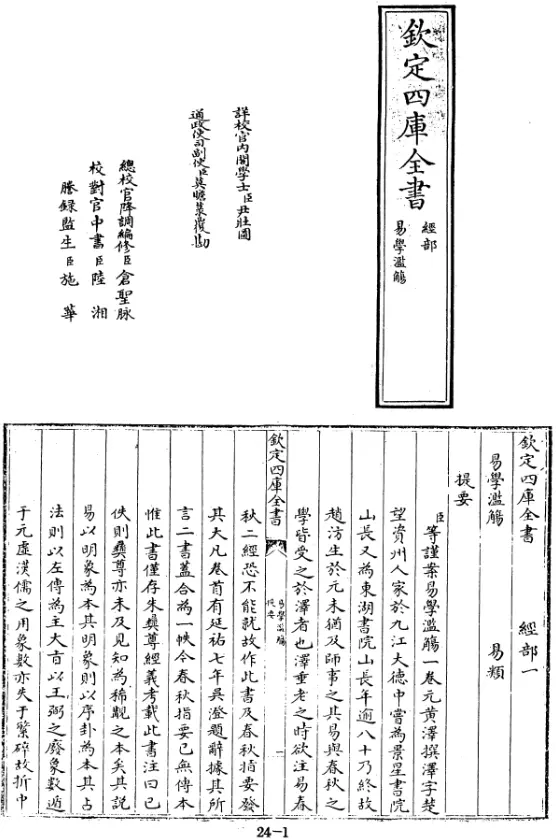 欽定四庫全書
經部
易學濫觴
詳校官內閣學士臣尹壯圖
通政使司副使臣莫瞻菉覆勘
總校官降調編修臣倉聖脉
校對官中書臣陸湘
謄錄監生臣施華
欽定四庫全書 經部一
易學濫觴 易類
提要
臣等謹案易學濫觴一卷元黃澤撰澤字楚
望資州人家於九江大德中嘗為景星書院
山長又為東湖書院山長年逾八十乃終故
趙汸生於元末猶及師事之其易與春秋之
學皆受之於澤者也澤垂老之時欲注易春
欽定四庫全書
易學濫觴
提要
一
秋二經恐不能就故作此書及春秋指要發
其大凡卷首有延祐七年吳澄題辭據其所
言二書蓋合為一帙今春秋指要已無傳本
惟此書僅存朱彝尊經義考載此書注曰已
佚則彝尊亦未及見知為稀覯之本矣其說
易以明象為本其明象則以序卦為本其占
法則以左傳為主大旨以王弼之廢象數遁
于元虛漢儒之用象數亦失于繁碎故折中
24-1